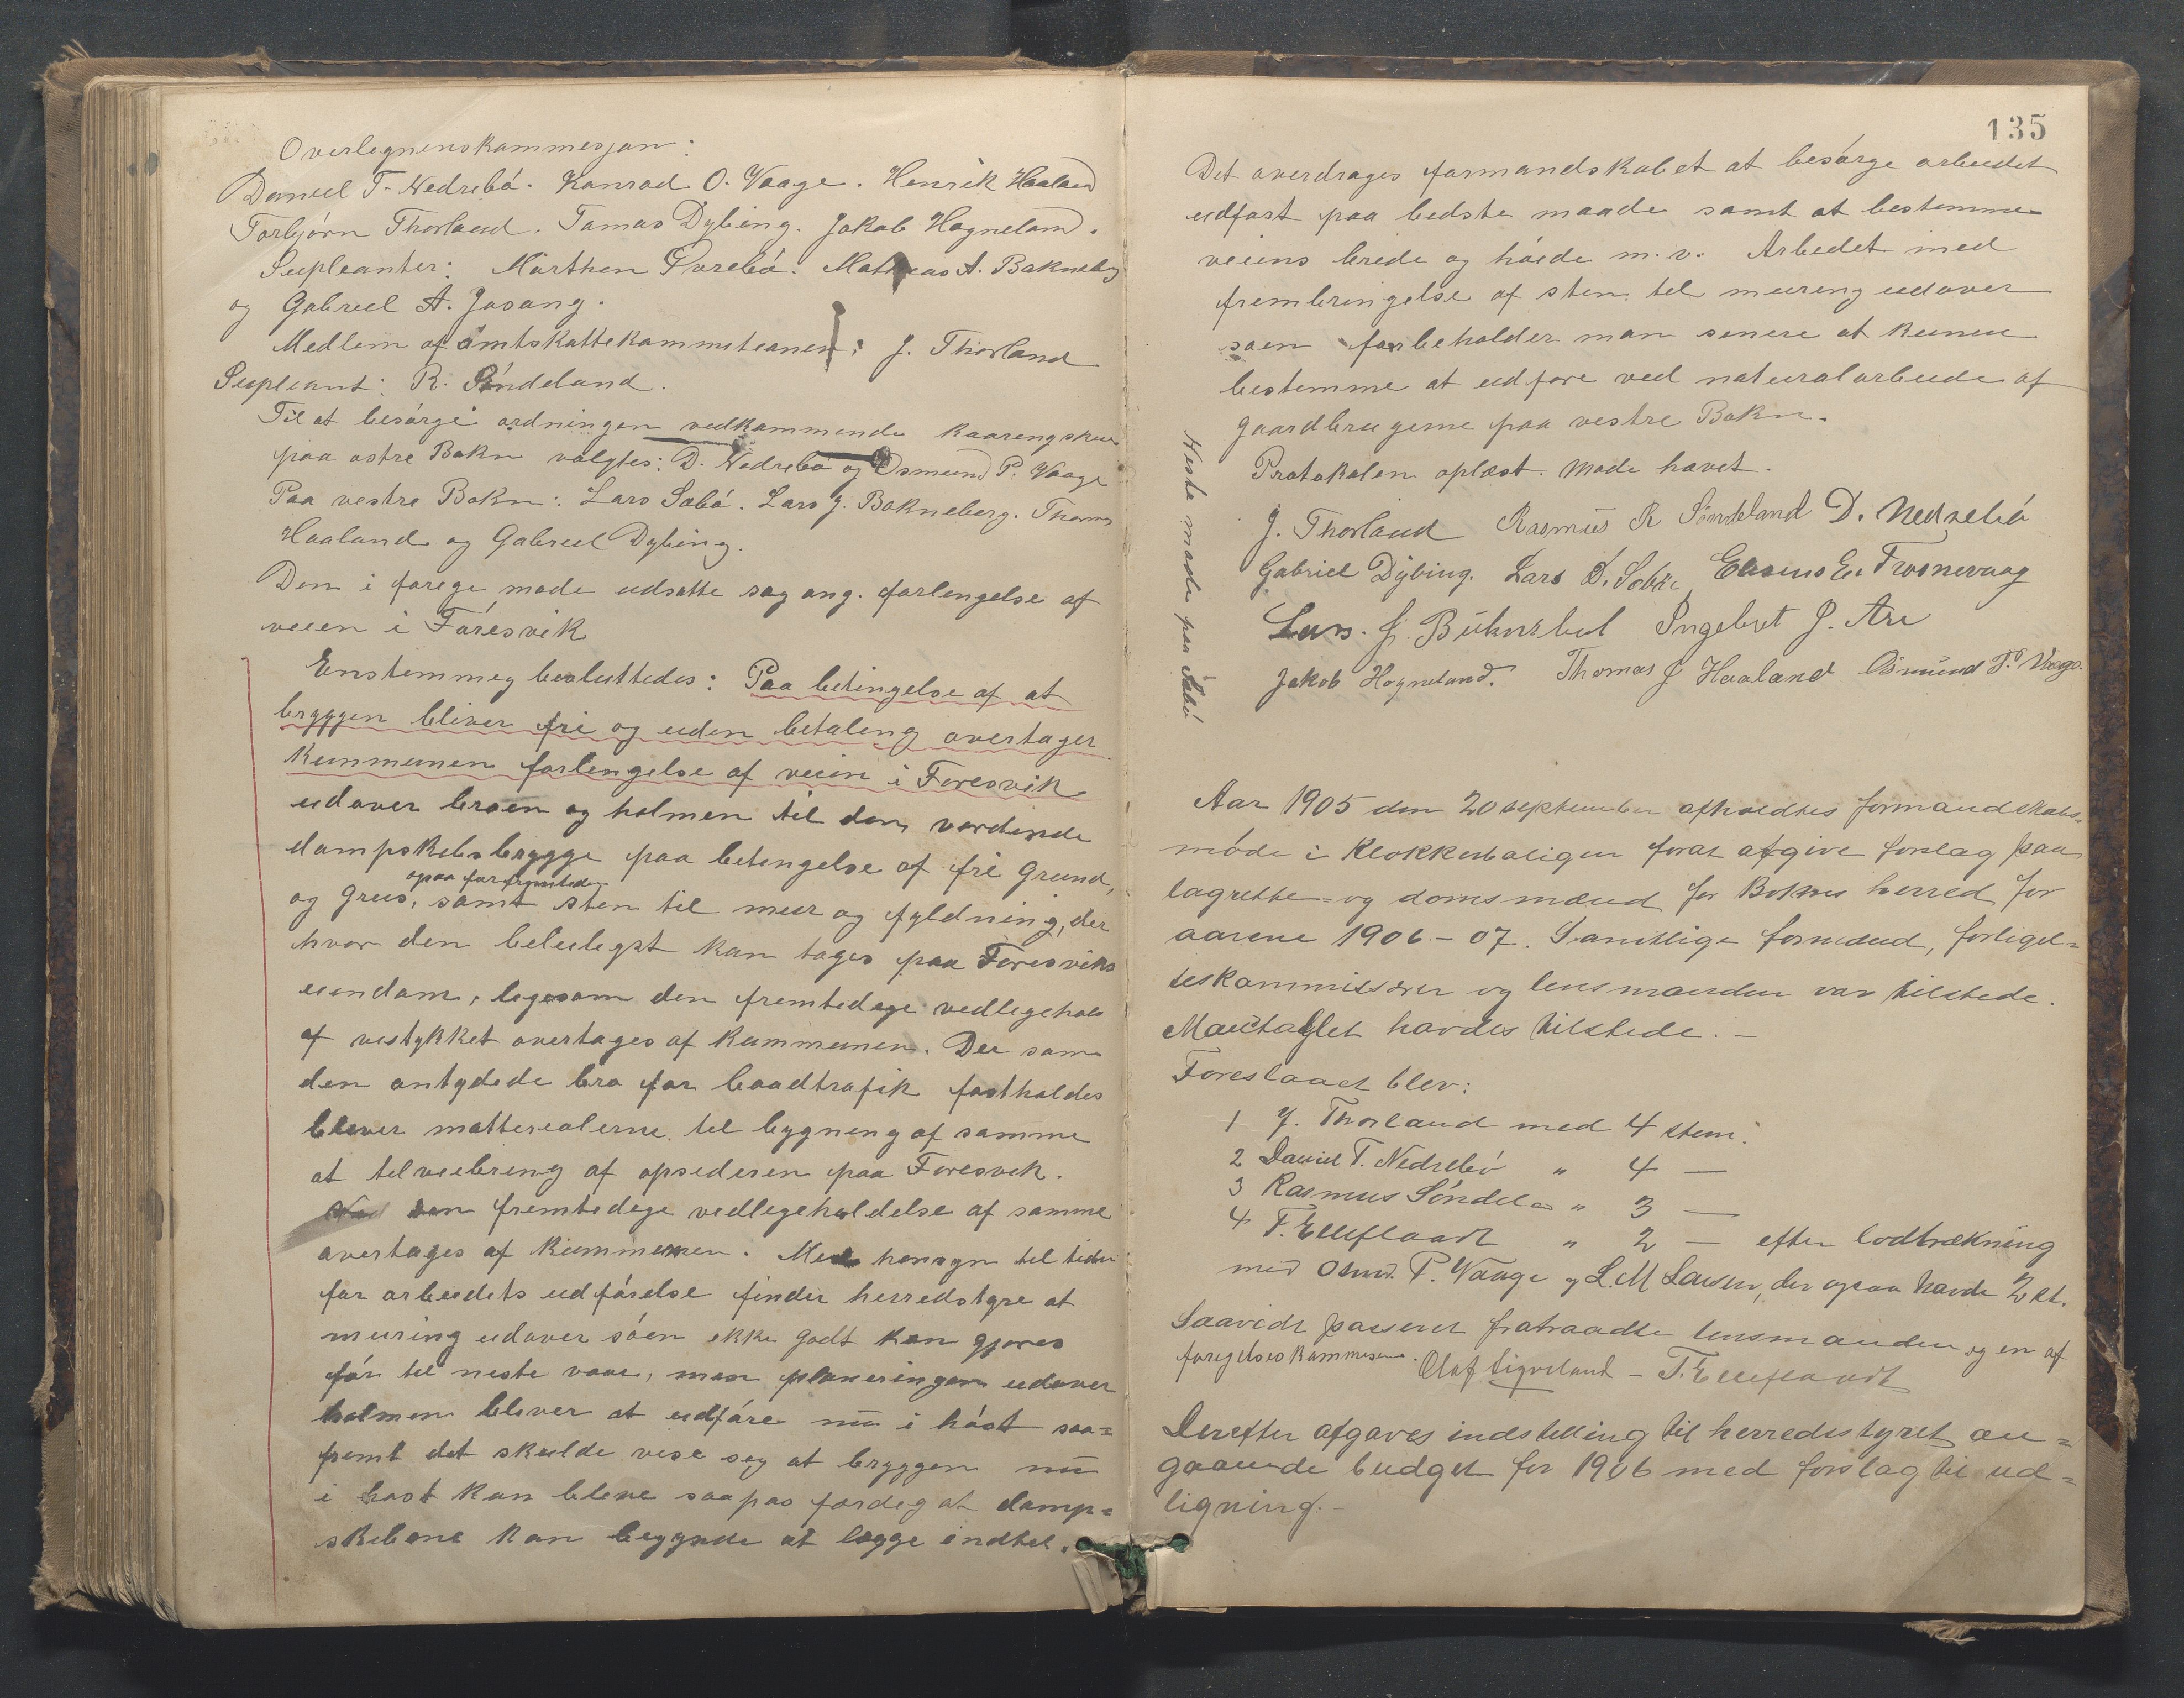 Overlegnenskommesjon:
Daniel T. Nedrebó. Konrad O. Vaage. Henrik Haaland
Torbjórn Thorland. Tomas Dybing. Jakob Hogneland.
Supleanter: Mórthen Óvrebó. Mathias A. Bakneberg
og Gabriel A. Jøsang.
Medlem af amtskattekommiteonen: J. Thorland
Supleant: R. Søndeland.
Til at besørge ordningen vedkommende kaaringskue
paa østre Bokn valgtes: D. Nedrebó og Osmund P. Vaage
Paa vestre Bokn: Lars Sabó. Lars J. Bokneberg. Thomas
Haaland og Gabriel Dybing.
Den i forege møde udsatte sag ang. forlengelse af
veien i Fóresvik
Enstemmeg besluttedes: Paa betingelse af at
bryggen bliver fri og uden betaleng overtager
Kummunen forlengelse af veien i Foresvik
udover broen og holmen til den vordende
dampskibsbrygge paa betengelse af fri Grund,
opaa for fremteden
og Grus, samt sten til mur og fyldning, der
hvor den beleilegst kan tages paa Foresviks
eiendom, legesom den fremtedege vedlegehold
af vestykket overtages af Kummunen. Der som
den antydede bro for baadtrafik fastholdes
blever matterealerne tel bygneng af samme
at telveiebreng af opsederen paa Foresvek.
den fremtedege vedlegeholdelse af samme
overtages af Kummunen. Med hensyn tel teden
for arbeidets udfórelse finder herredstyre at
muring udover sóen ekke godt kan gjøres
fór tel neste vaar, men planeringen udover
holmen blever at udfóre nu i hóst saa=
fremt det skulde vese seg at bryggen nu
i høst kan bleve saapas ferdeg at damp=
skebene kan begynde at lægge indtel.
135
Det overdrages formandskabet at besórge arbeidet
udført paa bedste maade samt at bestemme
veiens brede og hóide m.v. Arbedet med
frembringelse af sten til mureng udover
søen forbeholder man senere at kunne
bestemme at udføre ved naturalarbeide af
gaardbrugerne paa vestre Bokn.
Protokolen oplæst. Møde hævet.
Neste møde paa Sabó
J. Thorland Rasmus R Søndeland D. Nedrebó
Gabriel Dybing. Lars O. Sebø Elseus E. Trosnevaag
Lars. J. Boknebeg Ingebret J. Are
Jakob Hogneland. Thomas J Haaland Osmund P. Vaage.
Aar 1905 den 20 september afholdtes formandskabs=
móde i Klokkerboligen forat afgive forslag paa
lagrette= og domsmænd for Bokns herred for
aarene 1906-07. Samtlige formænd, forligel=
seskommissærer og lensmanden var tilstede.
Mantallet havdes tilstede. —
Foreslaaet blev:
1 J. Thorland med 4 stem.
2 Daniel T. Nedrebó " 4 —
3 Rasmus Sóndela " 3 —
4 T. Elleflaadt " 2 — efter lodtrækning
med Osm. P. Vaage og L. M Larsen, der ogsaa havde 2 st.
Saavidt passeret fratraadte lensmanden og en af
foregelseskommesene. Olaf Sigveland — T. Elleflaadt
Derefter afgaves indstilling til herredsstyret an=
gaaende budget for 1906 med forslag til ud=
ligning. —